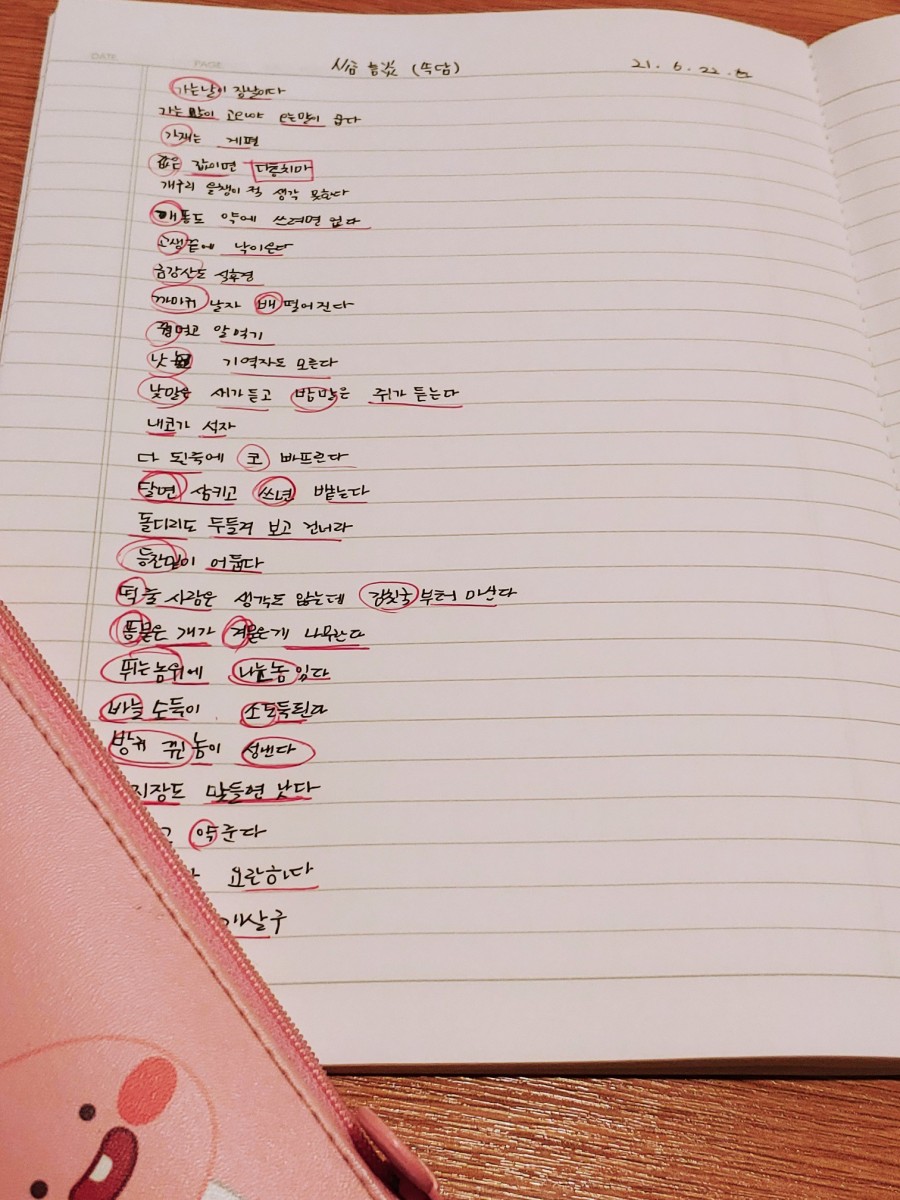 DATE
PAGE
(쏙담) 21. 6. 22.
가는날이 장날이다
가는 말이 고와야 오는말이 곱다
가재는 게편
같은 값이면 다홍치마
개구리 올챙이 적 생각 못한다
개똥도 약에 쓰려면 없다
고생끝에 낙이온다
금강산도 식후경
까마귀 날자 배 떨어진다
꿩먹고 알먹기
낫 놓 기역자도 모른다
낮말은 새가듣고 밤말은 쥐가 듣는다
내코가 석자
다 된죽에 코 빠트린다
달면 삼키고 쓰면 뱉는다
돌다리도 두들겨 보고 건너라
등잔밑이 어둡다
떡 줄 사람은 생각도 않는데 김칫국부터 마신다
똥묻은 개가 겨묻은개 나무란다
뛰는놈위에 나는놈 있다
바늘 도둑이 소도둑된다
방귀 뀐 놈이 성낸다
지장도 맞들면 낫다
고 약준다
요란하다
개살구